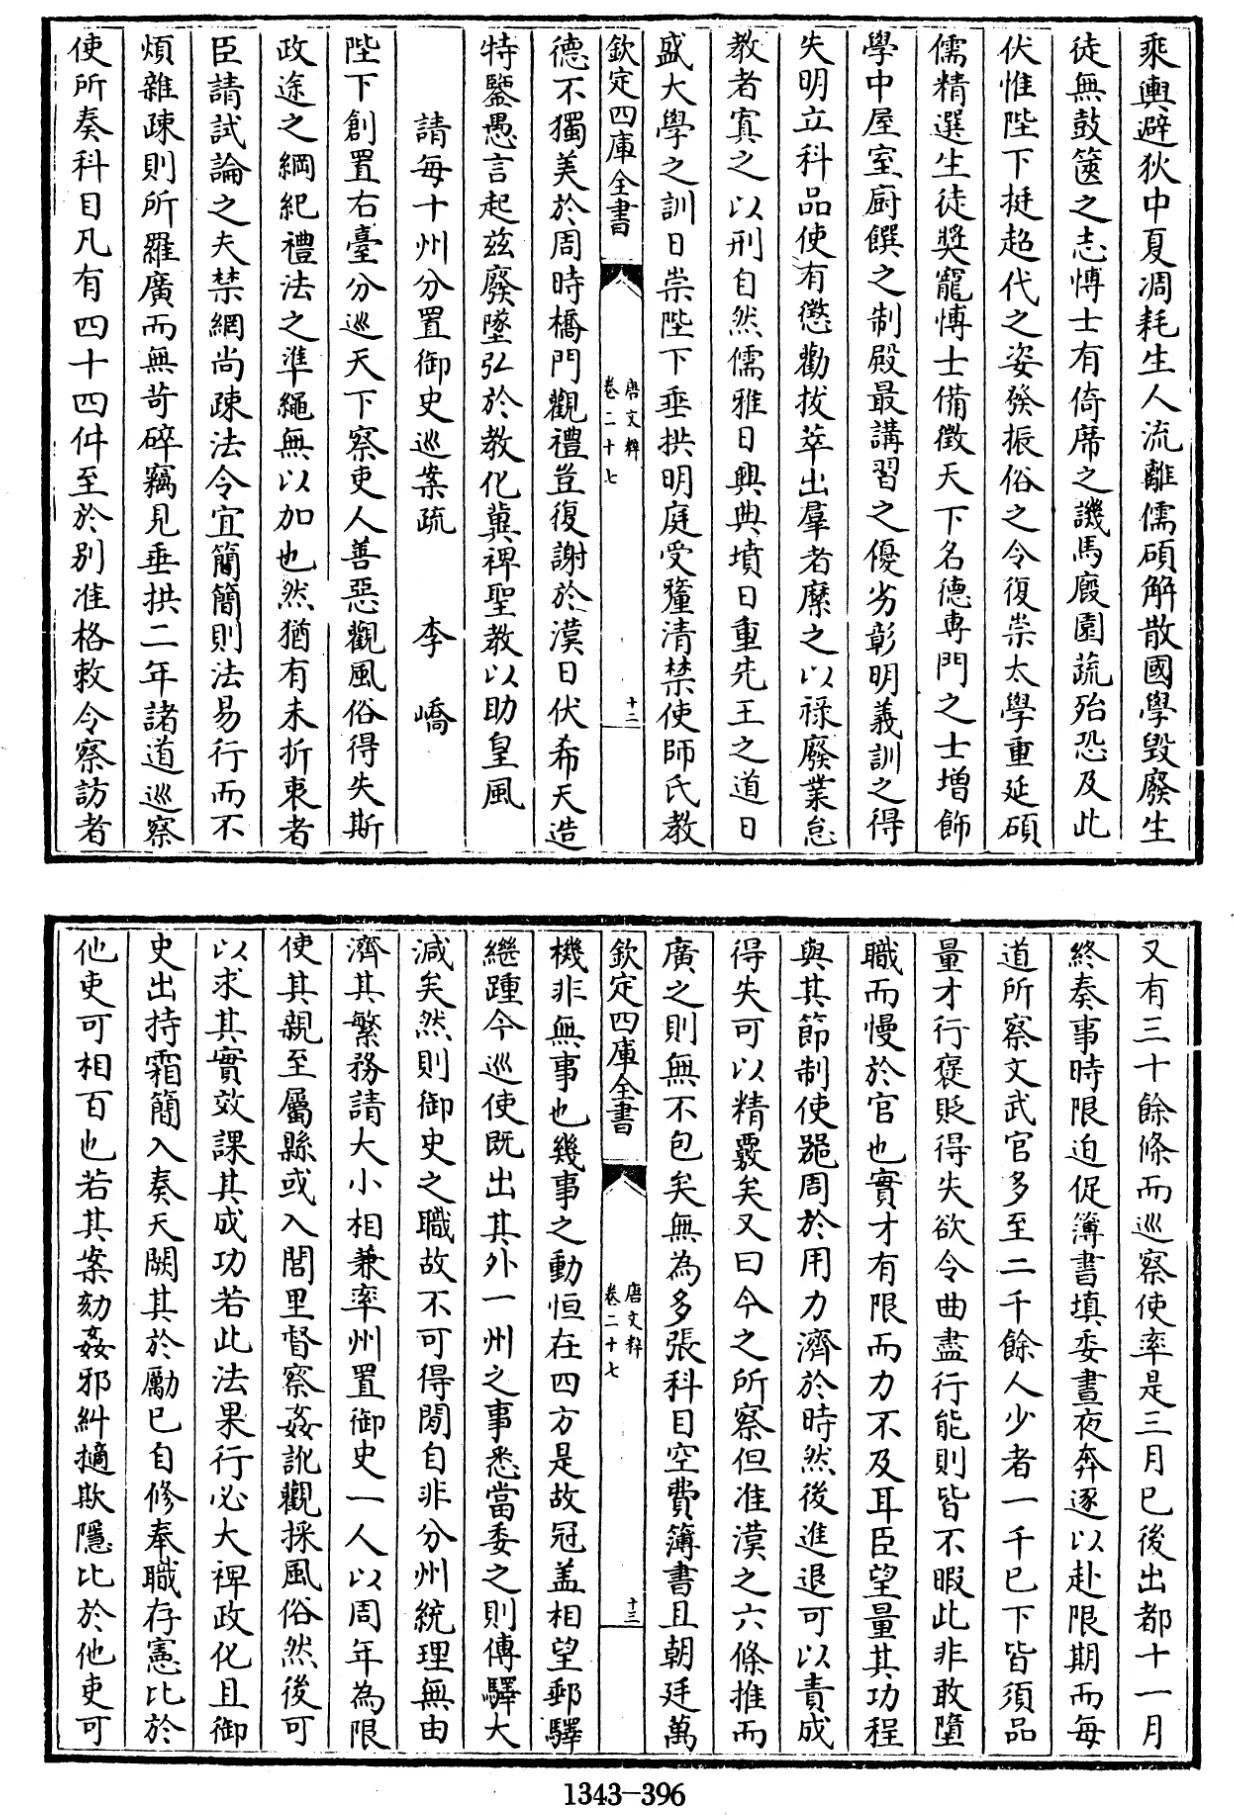 乘輿避狄中夏凋耗生人流離儒碩解散國學毀廢生
徒無鼓篋之志愽士有倚席之譏馬廄園蔬殆恐及此
伏惟陛下挺超代之姿發振俗之令復崇太學重延碩
儒精選生徒奬寵愽士備徵天下名德專門之士增飾
學中屋室厨饌之制殿最講習之優劣彰明義訓之得
失明立科品使有懲勸拔萃出羣者縻之以祿廢業怠
教者寘之以刑自然儒雅日興典墳日重先王之道日
盛大學之訓日崇陛下垂拱明庭受釐清禁使師氏教
欽定四庫全書
唐文粹
卷二十七
十二
德不獨美於周時橋門觀禮豈復謝於漢日伏希天造
特鑒愚言起兹廢墜弘於教化冀裨聖教以助皇風
請每十州分置御史巡案疏 李嶠
陛下創置右臺分巡天下察吏人善惡觀風俗得失斯
政途之綱紀禮法之準繩無以加也然猶有未折衷者
臣請試論之夫禁網尚疎法令宜簡簡則法易行而不
煩雜疎則所羅廣而無苛碎竊見垂拱二年諸道巡察
使所奏科目凡有四十四件至於别准格敕令察訪者
又有三十餘條而巡察使率是三月已後出都十一月
終奏事時限迫促簿書填委晝夜奔逐以赴限期而每
道所察文武官多至二千餘人少者一千已下皆須品
量才行褒貶得失欲令曲盡行能則皆不暇此非敢墮
職而慢於官也實才有限而力不及耳臣望量其功程
與其節制使器周於用力濟於時然後進退可以責成
得失可以精覈矣又曰今之所察但准漢之六條推而
廣之則無不包矣無為多張科目空費簿書且朝廷萬
欽定四庫全書
唐文粹
卷二十七
十三
機非無事也幾事之動恒在四方是故冠盖相望郵驛
繼踵今巡使既出其外一州之事悉當委之則傳驛大
減矣然則御史之職故不可得閒自非分州統理無由
濟其繁務請大小相兼率州置御史一人以周年為限
使其親至屬縣或入閭里督察姦訛觀採風俗然後可
以求其實效課其成功若此法果行必大裨政化且御
史出持霜簡入奏天闕其於勵已自修奉職存憲比於
他吏可相百也若其案劾姦邪糾擿欺隱比於他吏可
1343-396